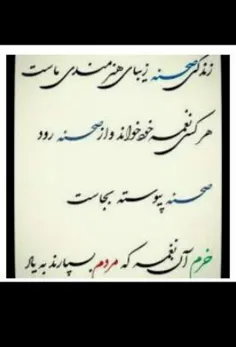 زندگی صحنه زیبای هنرمندی ماست
هر کسی نغمه خود خواند و از صحنه رود
صحنه پیوسته بجاست
خرم آن نغمه که مردم بسپارند به یاد